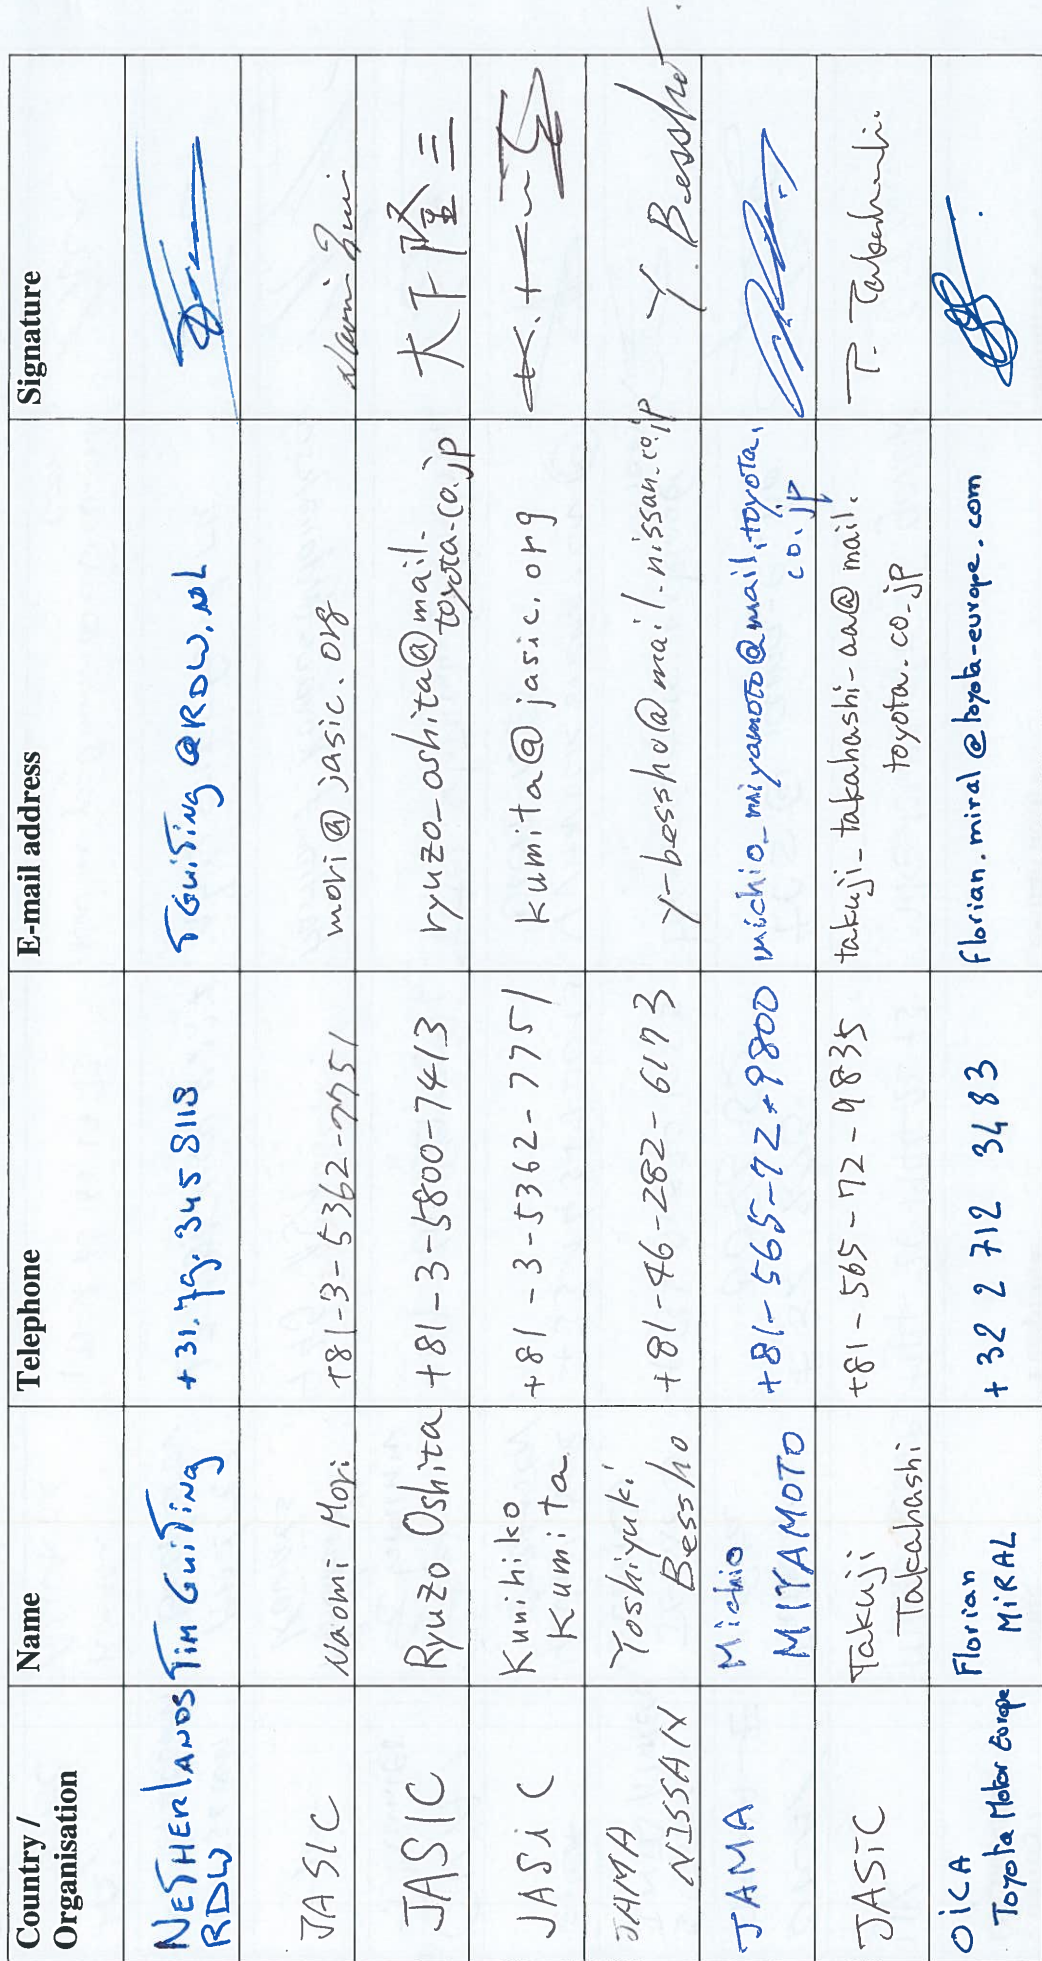 Country / Organisation Name Telephone E-mail address Signature
NETHERLANDS Tim Guiting +31.79.345 8118 TGuiting @RDW.NL
RDW
JASIC Naomi Mori +81-3-5362-7751 mori@jasic.org
JASIC Ryuzo Oshita +81-3-5800-7413 ryuzo_oshita@mail.
toyota.co.jp 大下隆三
JASiC Kunihiko
Kumita +81-3-5362-7751 kumita@jasic.org
JAMA
NISSAN Yoshiyuki
Bessho +81-46-282-6173 y-bessho@mail.nissan.co.jp Y. Bessho
JAMA Michio
MIYAMOTO +81-565-72-9800 michio_miyamoto@mail.toyota.
co.jp
JASIC Takuji
Takahashi +81-565-72-9835 takuji_takahashi-aa@mail.
toyota.co.jp T. Takahashi
OICA
Toyota Motor Europe Florian
MiRAL +32 2 712 3483 florian.miral@toyota-europe.com